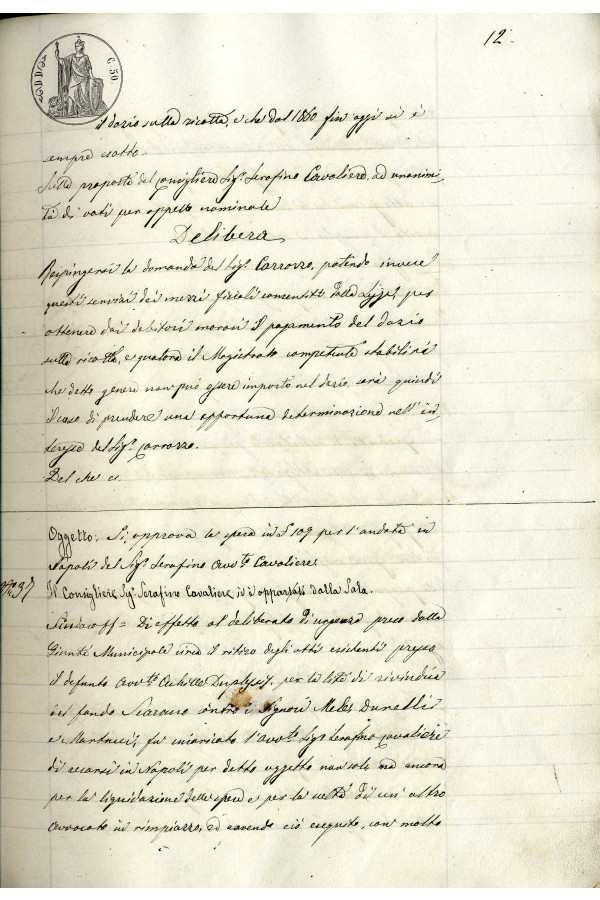 12.
C. 50
il dazio sulla ricotta, e che dal 1860 fin'oggi si è
sempre esatto.
Sulla proposta del Consigliere Sig.r Serafino Cavaliere, ad unanimi-
tà di voti per appello nominale
Delibera
Respingersi la domanda del Sig.r Carrozzo, potendo invece
questi servirsi dei mezzi fiscali consentiti dalla Legge, per
ottenere dai debitori morosi il pagamento del dazio
sulla ricotta, e qualora il Magistrato competente stabilirà
che detto genere non può essere imposto nel dazio, sarà quindi
il caso di prendere una opportuna determinazione nell'in-
teresse del Sig.r Carrozzo.
Del che ec.
Oggetto: Si approva la spesa in £ 109 per l'andata in
Napoli del Sig.r Serafino Avv.to Cavaliere
N.o 37
Il Consigliere Sig.r Serafino Cavaliere si è appartato dalla Sala.
Sindaco ff = Di effetto al deliberato di urgenza preso dalla
Giunta Municipale circa il ritiro degli atti esistenti presso
il defunto Avv.to Achille per la lite di rivindica
del fondo contro i Signori
e Martucci, fu incaricato l'Avv.to Sig.r Serafino Cavaliere
di recarsi in Napoli per detto oggetto non solo ma ancora
per la liquidazione delle spese e per la scelta di un altro
Avvocato in rimpiazzo, ed avendo ciò eseguito, con molto